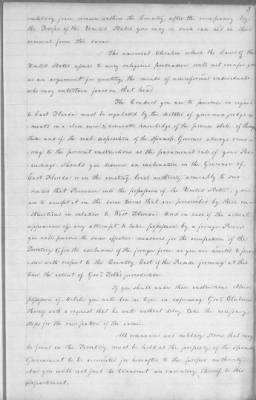 3
existing from arising within the Country, after the occupancy by
the Troops of the United States you may in such case aid in their
removal from the same.
The universal toleration which the Laws of the
United States assure to every religious persuasion will not escape you
as an argument for quieting the minds of uninformed individuals
who may entertain fears on that head.
The Conduct you are to pursue in regard
to East Florida must be regulated by the dictates of your own judge
ments on a close view & accurate knowledge of the precise state of things
there and of the real disposition of the Spanish Government always recurring
to the present instructions as the paramount rule of your Pro
ceedings. Should you discover an inclination in the Governor of
East Florida or in the existing local authority amicably to sur
render that Province into the possession of the United States, you
are to accept it on the same terms that are prescribed by these in
structions in relation to West Florida. And in case of the actual
appearance of any attempt to take possession by a foreign Power
you will pursue the same effective measures for the occupation of the
Territory & for the exclusion of the foreign force as you are directed to pur
sue with respect to the Country East of the Perdido forming at this
time the extent of Govr. Folch's jurisdiction.
If you should under these instructions obtain
possession of Mobile you will lose no time in informing Govr. Claiborne
thereof with a request that he will without delay take the necessary
steps for the occupation of the same.
All ordnance and military Stores that may
be found in the Territory must be held as the property of the Spanish
Government to be accounted for hereafter to the proper authority
and you will not fail to transmit an inventory thereof to this
Department.